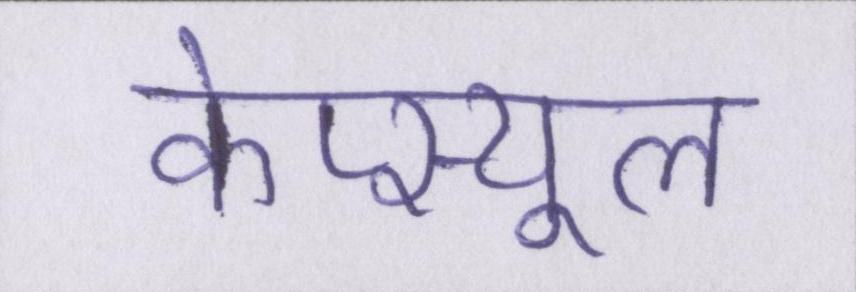 केप्स्यूल